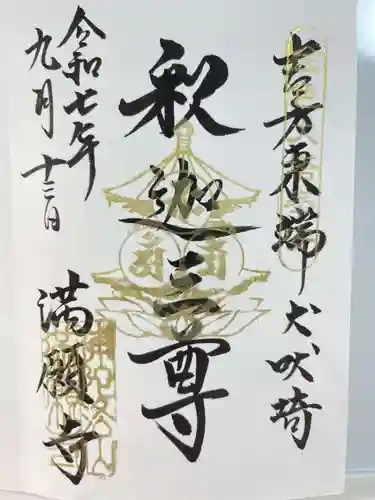 吉方東端 犬吠埼
釈迦三尊
令和七年
九月十三日
満願寺